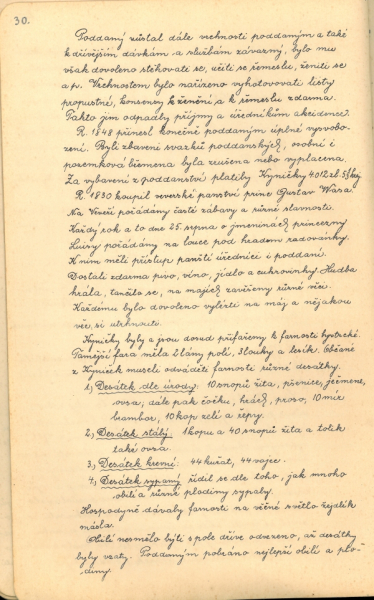 30.
Poddaný zůstal dále vrchnosti poddaným a také
k dřívějším dávkám a službám závazný, bylo mu
však dovoleno stěhovati se, učiti se řemeslu, ženiti se
a p. Vrchnostem bylo nařízeno vyhotovovati listy
propustné, konsensy k ženění a k řemeslu zdarma.
Takto jim odpadly příjmy a úředníkům akcidence.
R. 1848 přinesl konečně poddaným úplné vysvobo-
zení. Byli zbaveni svazků poddanských, osobní i
pozemková břemena byla zrušena nebo vyplacena.
Za vybavení z poddanství platily Kyničky 4012 zl.
R. 1830 koupil veverské panství princ Gustav Wasa.
Na Veveří pořádány časté zábavy a různé slavnosti.
Každý rok a to dne 25. srpna o jmeninách princezny
Luisy pořádány na louce pod hradem radovánky.
K nim měli přístup panští úředníci i poddaní.
Dostali zdarma pivo, víno, jídlo a cukrovinky. Hudba
hrála, tančilo se, na májích zavěšeny různé věci.
Každému bylo dovoleno vylézti na máj a nějakou
věc si utrhnouti.
Kyničky byly a jsou dosud přifařeny k farnosti
Tamější fara měla lány polí, louky a lesík. Občané
z Kyniček museli odváděti farnosti různé desátky.
1, Desátek dle úrody: 10 snopů žita, pšenice, ječmene,
ovsa; dále pak čočku, hrách, proso, 10 měr
brambor, 10 kop zelí a řepy.
2, Desátek stálý: 1 kopu a 40 snopů žita a tolik
také ovsa.
3, Desátek krevní: 44 kuřat, 44 vajec.
4, Desátek sypaný řídil se dle toho, jak mnoho
obilí a různé plodiny sypaly.
Hospodyně dávaly farnosti na věčné světlo žejdlík
másla.
Obilí nesmělo býti s pole dříve odvezeno, až desátky
byly vzaty. Poddaným pobráno nejlepší obilí a plo-
diny.